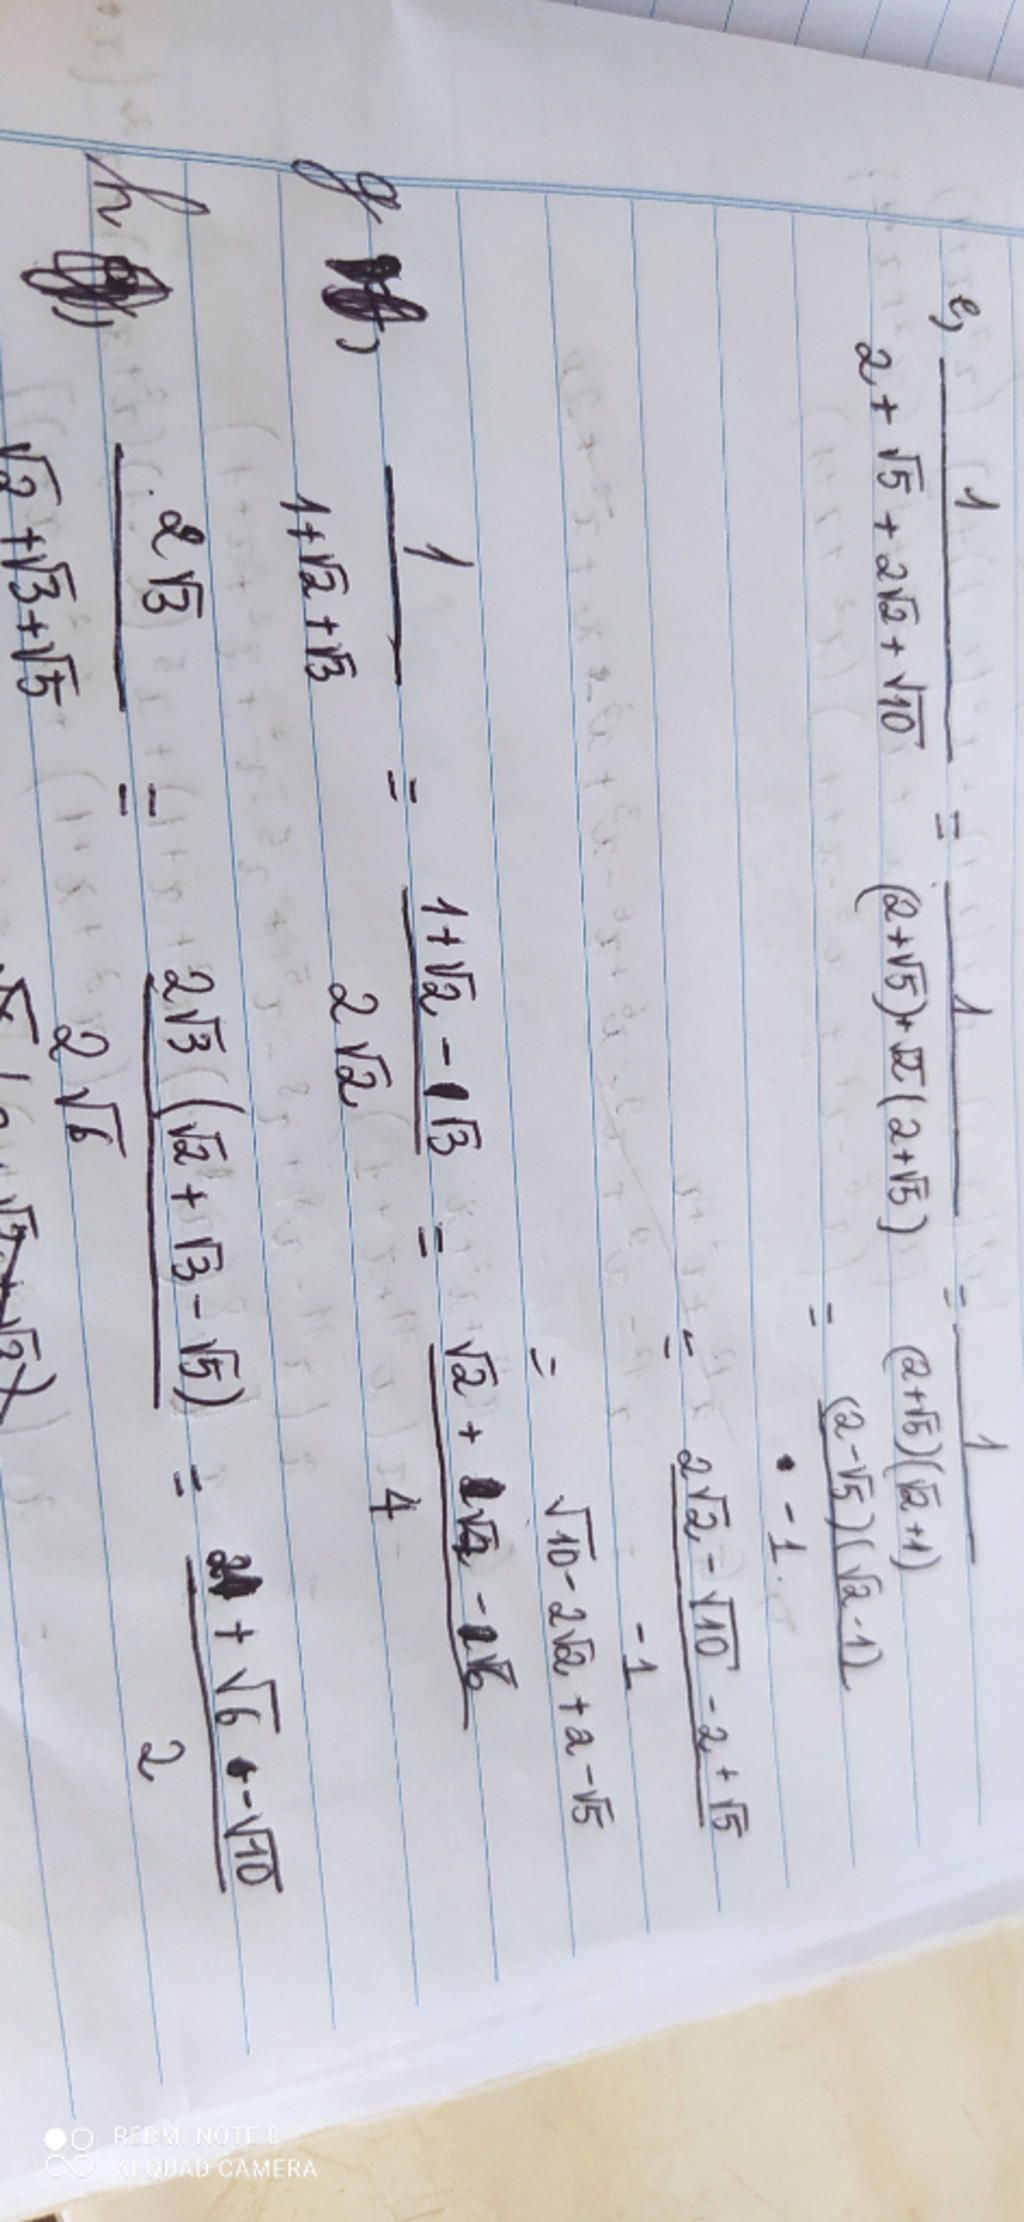 e, 1/(2 + √5 + 2√2 + √10) = 1/((2+√5) + √2(2+√5)) = 1/((2+√5)(√2+1))
= (2-√5)(√2-1)/-1
= (2√2 - √10 - 2 + √5)/-1
= √10 - 2√2 + 2 - √5
g, 1/(1+√2+√3) = (1+√2-√3)/(2√2) = (√2 + 2 - √6)/4
h, 2√3/(√2+√3+√5) = 2√3(√2+√3-√5)/(2√6) = (2+√6-√10)/2
REDMI NOTE 8
AI QUAD CAMERA